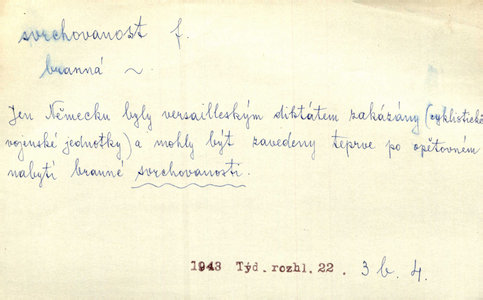 svrchovanost f.
branná ~.
Jen Německu byly versailleským diktátem zakázány (cyklistické
vojenské jednotky) a mohly být zavedeny teprve po opětovném
nabytí branné svrchovanosti.
1943 Týd. rozhl. 22. 3 b. 4.